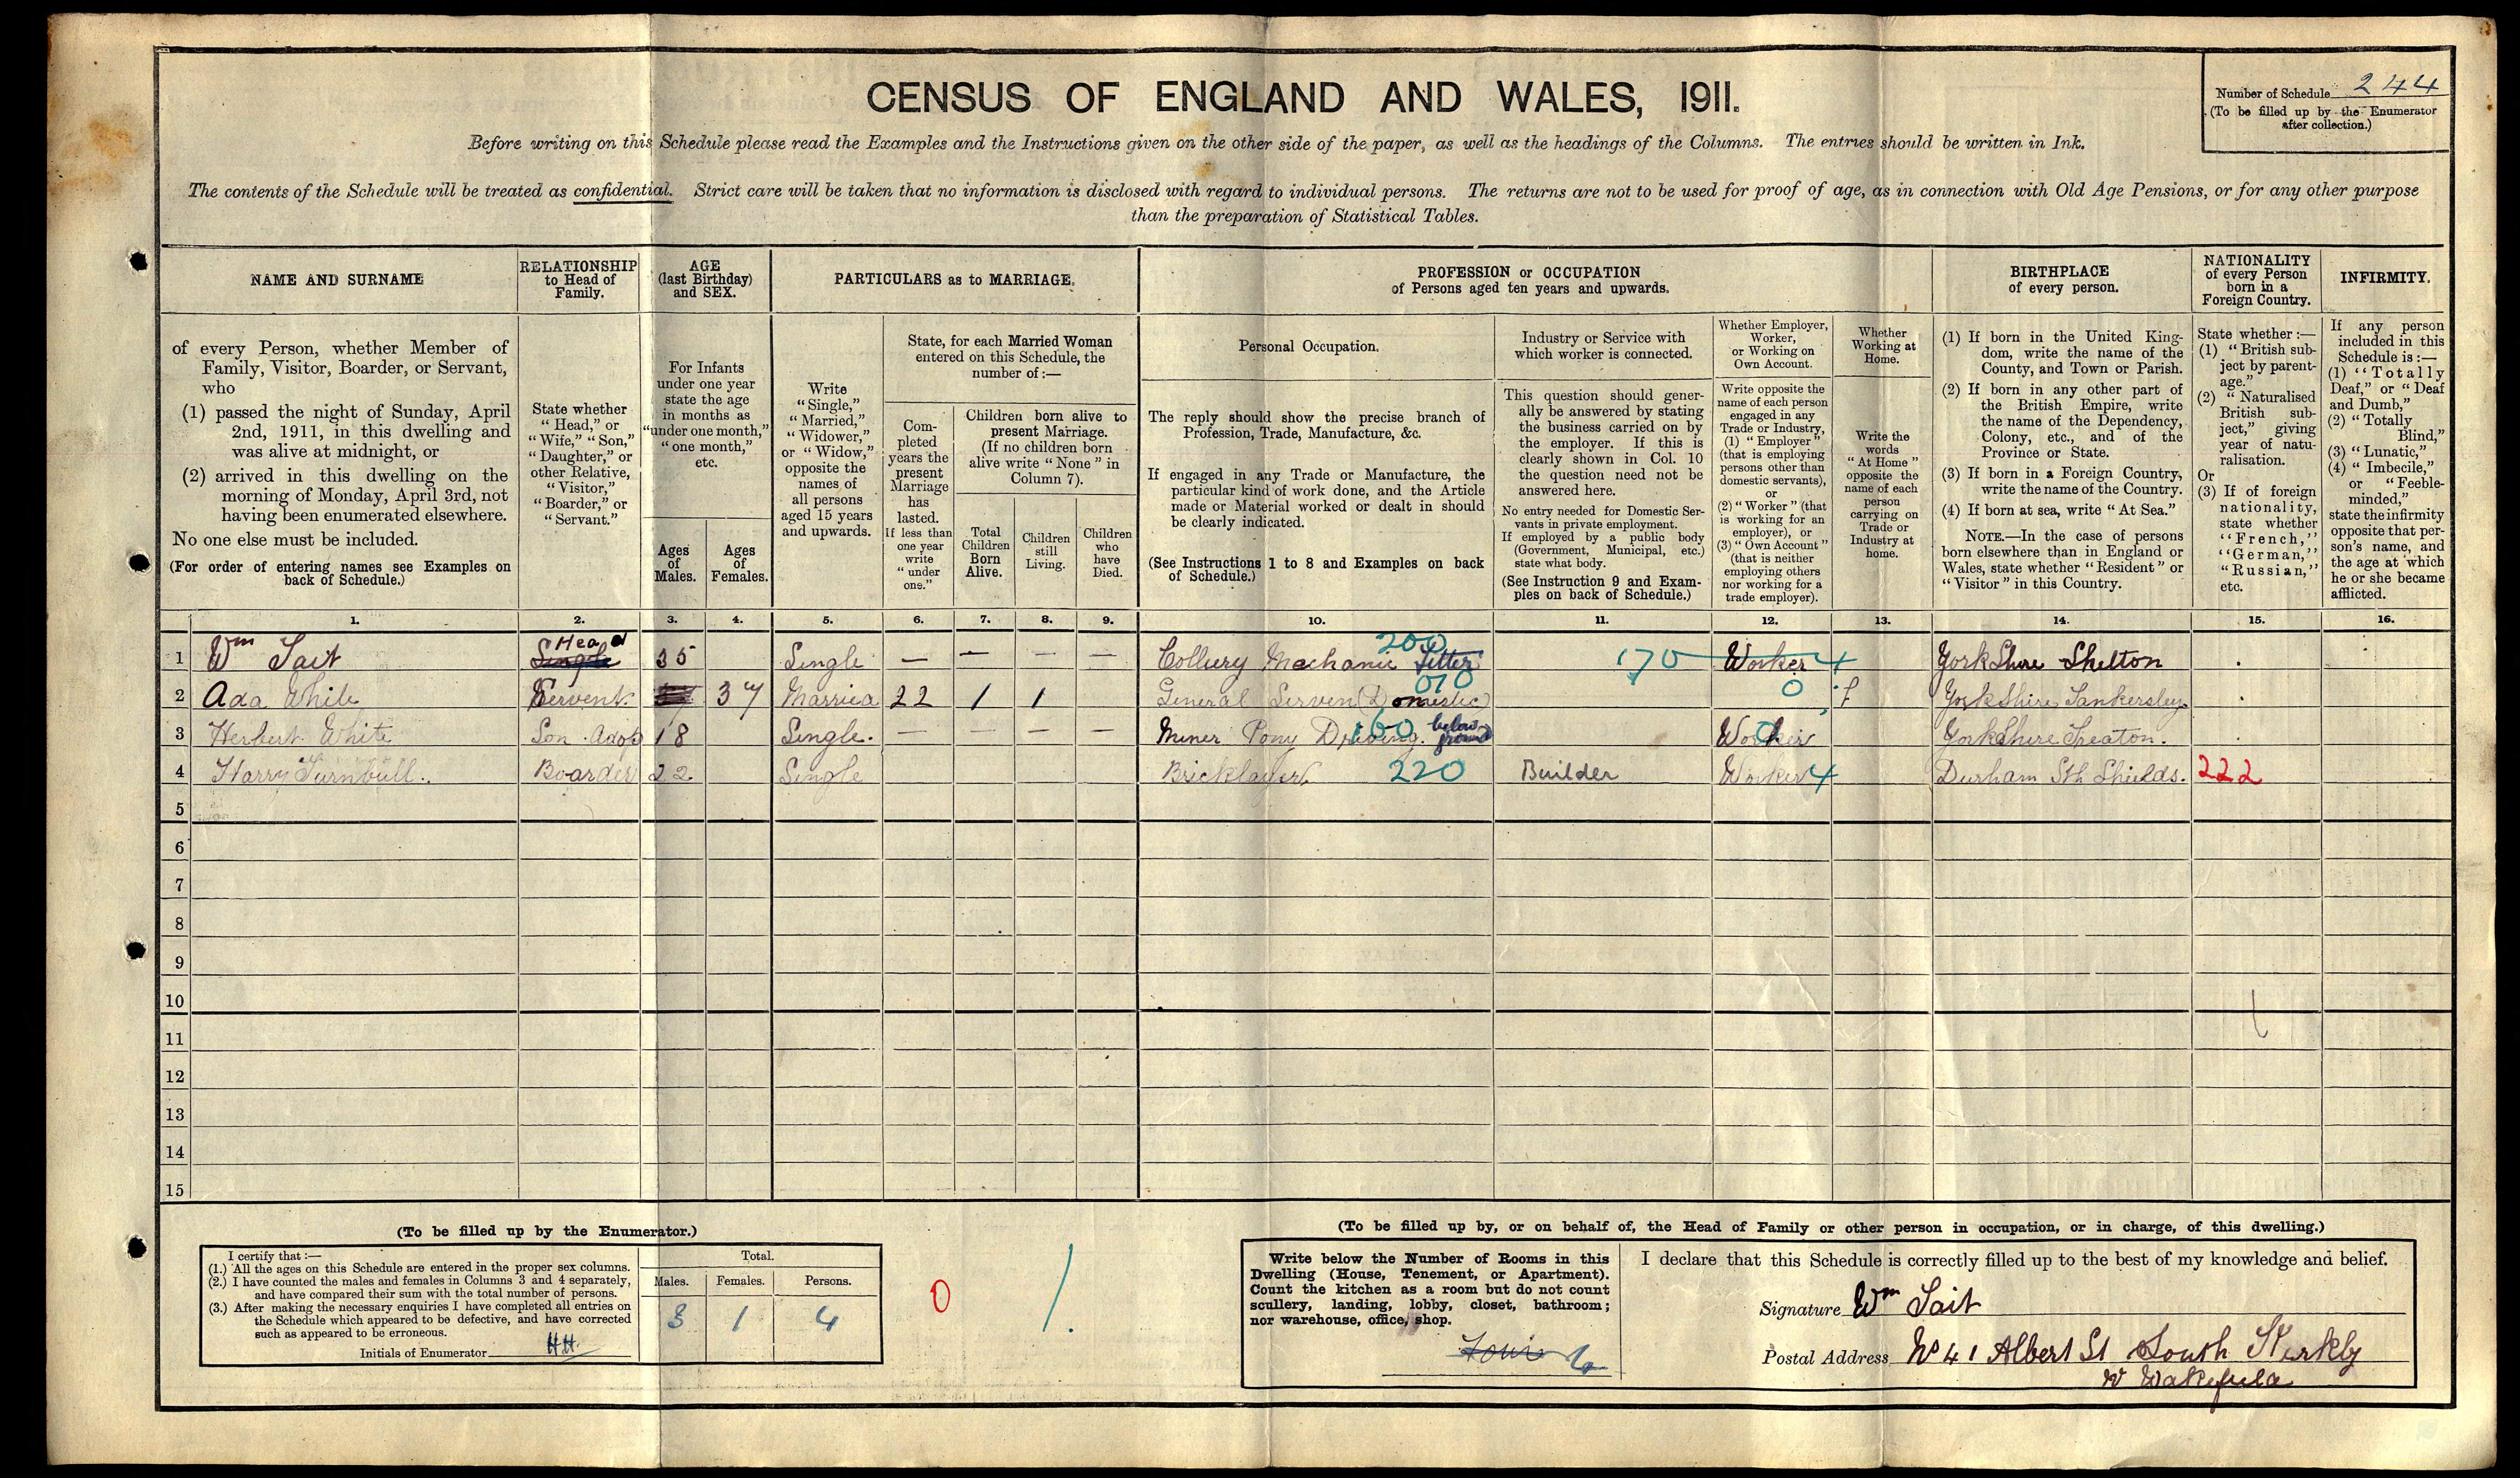 CENSUS OF ENGLAND AND WALES, 1911.
Number of Schedule 244
(To be filled up by the Enumerator
after collection.)
Before writing on this Schedule please read the Examples and the Instructions given on the other side of the paper, as well as the headings of the Columns. The entries should be written in Ink.
The contents of the Schedule will be treated as confidential. Strict care will be taken that no information is disclosed with regard to individual persons. The returns are not to be used for proof of age, as in connection with Old Age Pensions, or for any other purpose
than the preparation of Statistical Tables.
NAME AND SURNAME
of every Person, whether Member of
Family, Visitor, Boarder, or Servant,
who
(1) passed the night of Sunday, April
2nd, 1911, in this dwelling and
was alive at midnight, or
(2) arrived in this dwelling on the
morning of Monday, April 3rd, not
having been enumerated elsewhere.
No one else must be included.
(For order of entering names see Examples on
back of Schedule.)
RELATIONSHIP
to Head of
Family.
State whether
"Head," or
"Wife," "Son,"
"Daughter," or
other Relative,
"Visitor,"
"Boarder," or
"Servant."
AGE
(last Birthday)
and SEX.
For Infants
under one year
state the age
in months as
"under one month,"
"one month,"
etc.
Ages
of
Males.
Ages
of
Females.
PARTICULARS as to MARRIAGE.
Write
"Single,"
"Married,"
"Widower,"
or "Widow,"
opposite the
names of
all persons
aged 15 years
and upwards.
State, for each Married Woman
entered on this Schedule, the
number of :—
Com-
pleted
years the
present
Marriage
has
lasted.
If less than
one year
write
"under
one."
Children born alive to
present Marriage.
(If no children born
alive write "None" in
Column 7).
Total
Children
Born
Alive.
Children
still
Living.
Children
who
have
Died.
PROFESSION or OCCUPATION
of Persons aged ten years and upwards.
Personal Occupation.
The reply should show the precise branch of
Profession, Trade, Manufacture, &c.
If engaged in any Trade or Manufacture, the
particular kind of work done, and the Article
made or Material worked or dealt in should
be clearly indicated.
(See Instructions 1 to 8 and Examples on back
of Schedule.)
Industry or Service with
which worker is connected.
This question should gener-
ally be answered by stating
the business carried on by
the employer. If this is
clearly shown in Col. 10
the question need not be
answered here.
No entry needed for Domestic Ser-
vants in private employment.
If employed by a public body
(Government, Municipal, etc.)
state what body.
(See Instruction 9 and Exam-
ples on back of Schedule.)
Whether Employer,
Worker,
or Working on
Own Account.
Write opposite the
name of each person
engaged in any
Trade or Industry,
(1) "Employer"
(that is employing
persons other than
domestic servants),
or
(2) "Worker" (that
is working for an
employer), or
(3) "Own Account"
(that is neither
employing others
nor working for a
trade employer).
Whether
Working at
Home.
Write the
words
"At Home"
opposite the
name of each
person
carrying on
Trade or
Industry at
home.
BIRTHPLACE
of every person.
(1) If born in the United King-
dom, write the name of the
County, and Town or Parish.
(2) If born in any other part of
the British Empire, write
the name of the Dependency,
Colony, etc., and of the
Province or State.
(3) If born in a Foreign Country,
write the name of the Country.
(4) If born at sea, write "At Sea."
NOTE.—In the case of persons
born elsewhere than in England or
Wales, state whether "Resident" or
"Visitor" in this Country.
NATIONALITY
of every Person
born in a
Foreign Country.
State whether :—
(1) "British sub-
ject by parent-
age."
(2) "Naturalised
British sub-
ject," giving
year of natu-
ralisation.
Or
(3) If of foreign
nationality,
state whether
"French,"
"German,"
"Russian,"
etc.
INFIRMITY.
If any person
included in this
Schedule is :—
(1) "Totally
Deaf," or "Deaf
and Dumb,"
(2) "Totally
Blind,"
(3) "Lunatic,"
(4) "Imbecile,"
or "Feeble-
minded,"
state the infirmity
opposite that per-
son's name, and
the age at which
he or she became
afflicted.
1. 2. 3. 4. 5. 6. 7. 8. 9. 10. 11. 12. 13. 14. 15. 16.
1 Wm Tait Single Head 35 Single — — — — Colliery Mechanic Fitter 200 170 Worker 4 Yorkshire Shelton
2 Ada White Servent 37 Married 22 1 1 General Serven (Domestic) 010 0 Yorkshire Tankersley
3 Herbert White Son Adop 18 Single. — — — — Miner Pony Driving. below ground 160 Worker 0 Yorkshire Treaton.
4 Harry Turnbull. Boarder 22 Single Bricklayer 220 Builder Worker 4 Durham Sth Shields. 222
5
6
7
8
9
10
11
12
13
14
15
(To be filled up by the Enumerator.)
I certify that :—
(1.) All the ages on this Schedule are entered in the proper sex columns.
(2.) I have counted the males and females in Columns 3 and 4 separately,
and have compared their sum with the total number of persons.
(3.) After making the necessary enquiries I have completed all entries on
the Schedule which appeared to be defective, and have corrected
such as appeared to be erroneous.
Initials of Enumerator H.H.
Total.
Males. Females. Persons.
3 1 4
0
(To be filled up by, or on behalf of, the Head of Family or other person in occupation, or in charge, of this dwelling.)
Write below the Number of Rooms in this
Dwelling (House, Tenement, or Apartment).
Count the kitchen as a room but do not count
scullery, landing, lobby, closet, bathroom;
nor warehouse, office, shop.
Four 6
I declare that this Schedule is correctly filled up to the best of my knowledge and belief.
Signature Wm Tait
Postal Address No 41 Albert St South Kirkby
Nr Wakefield